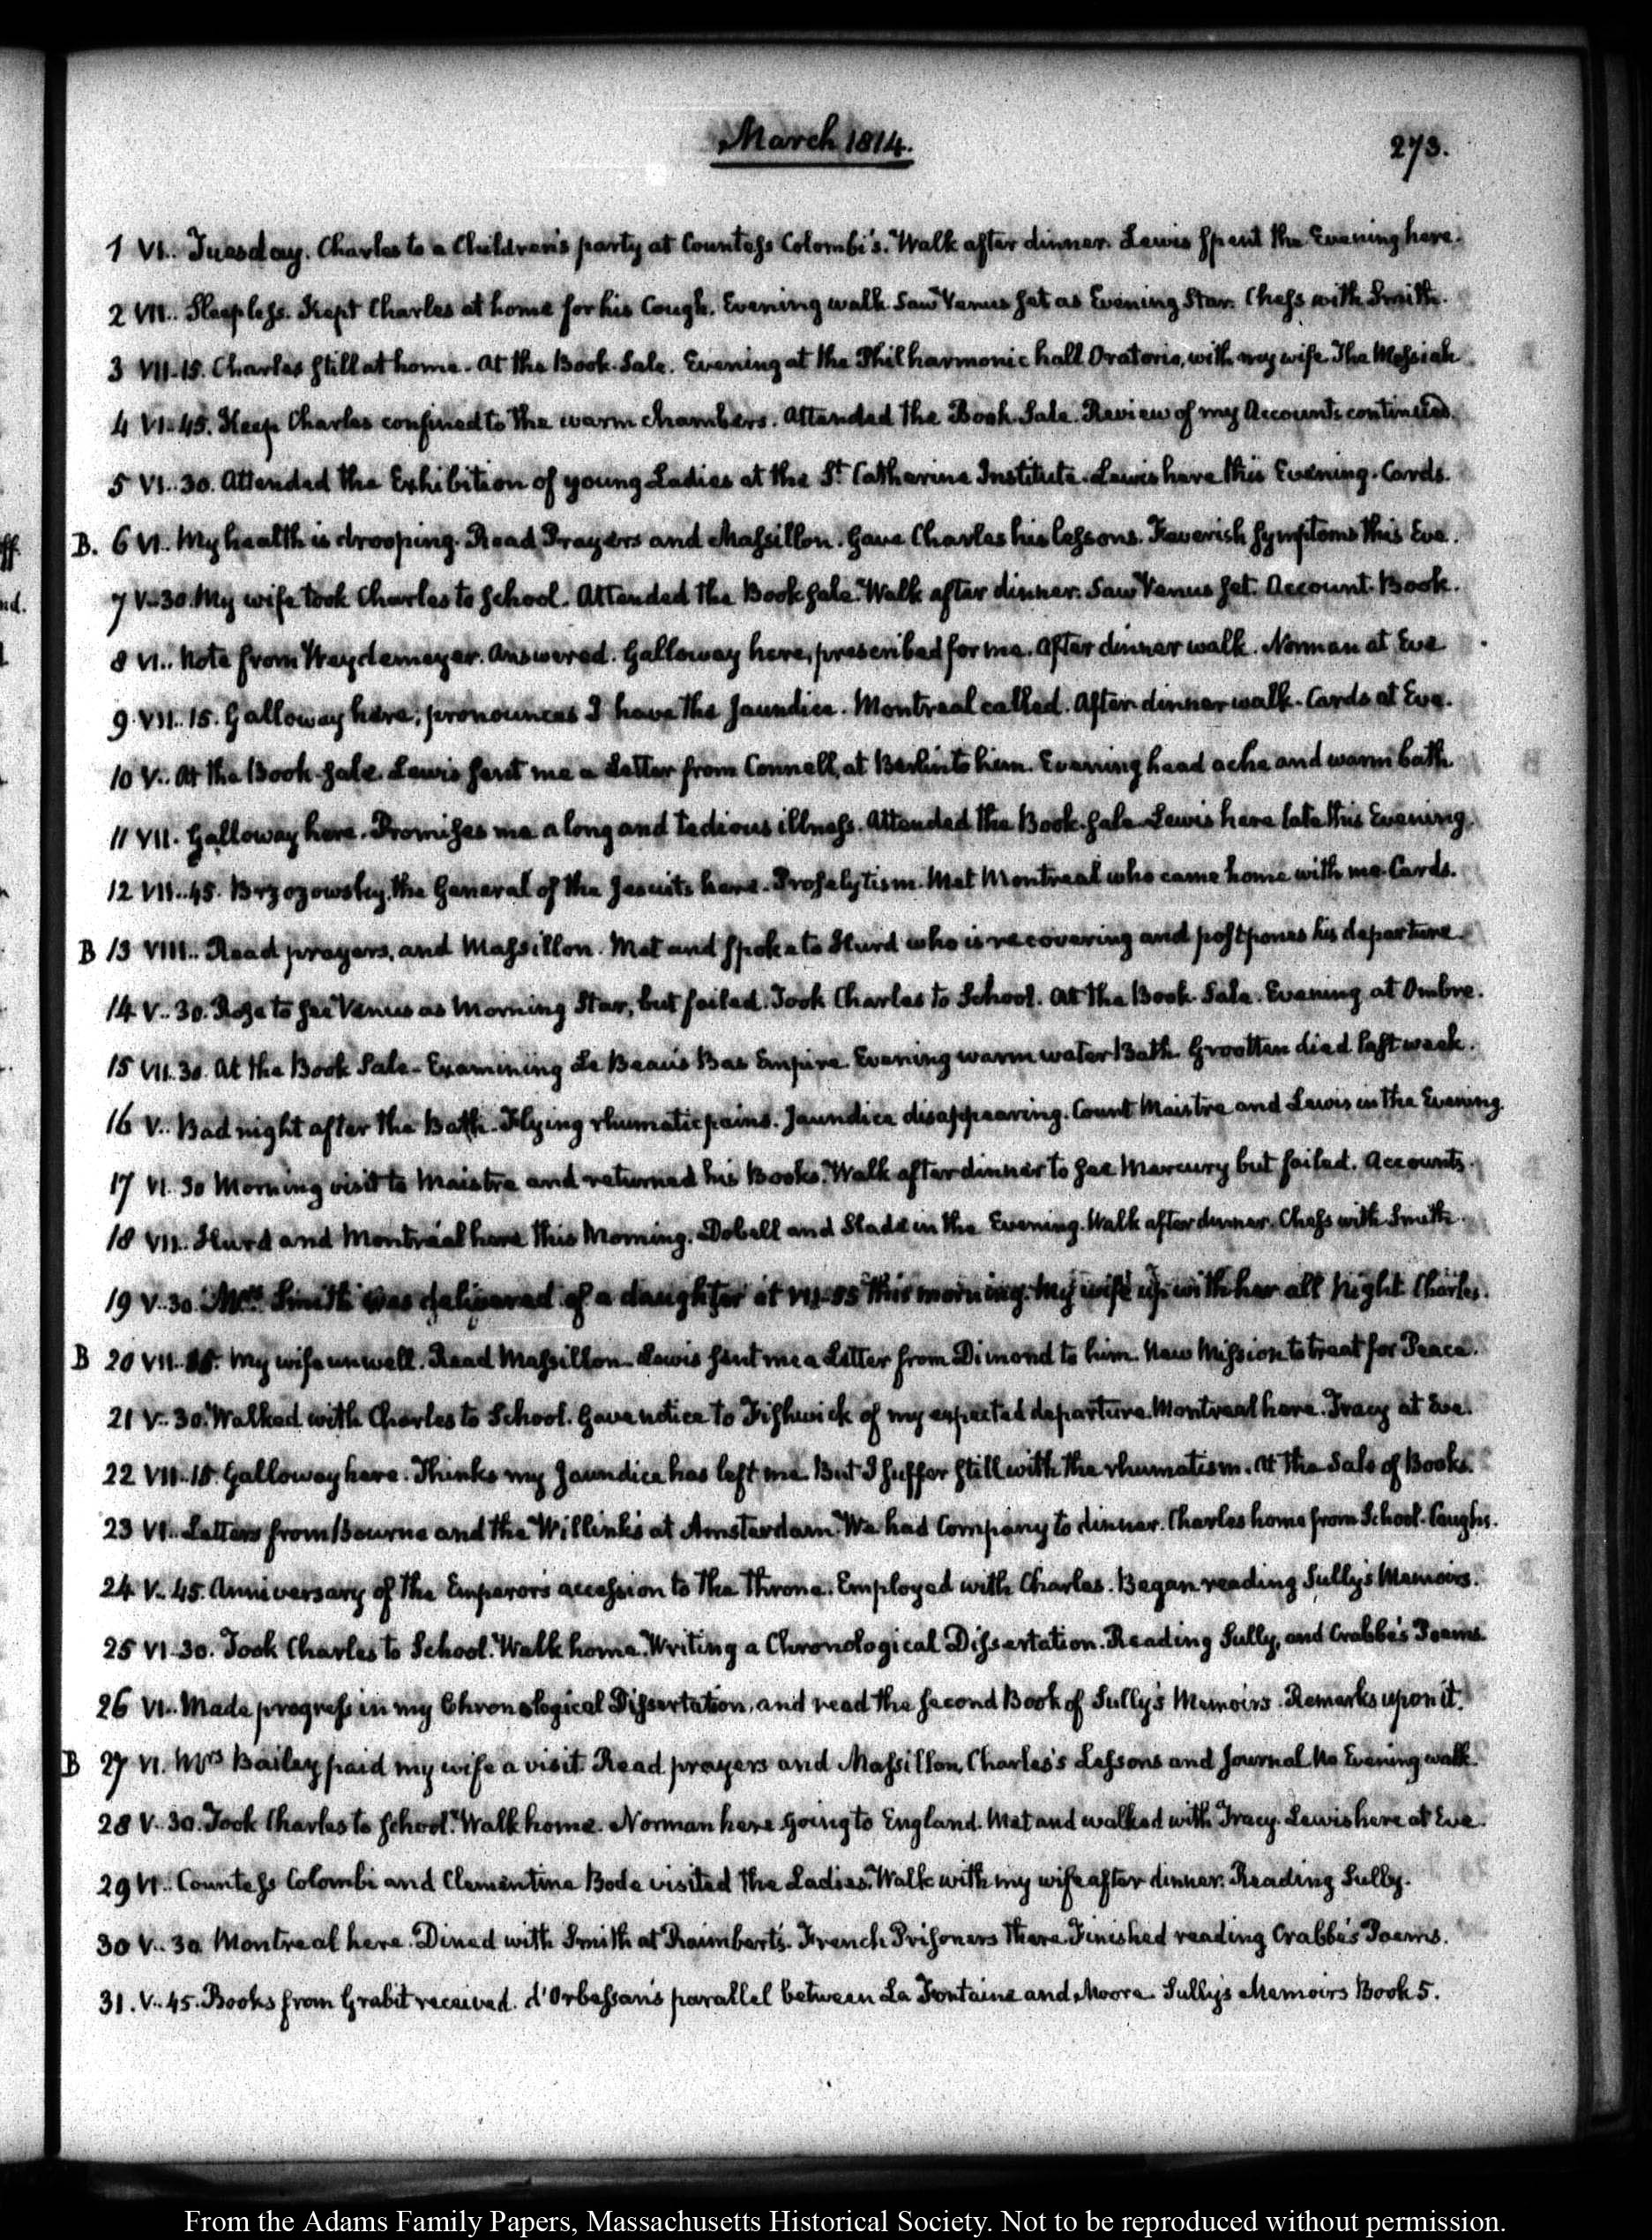 March 1814.
273.
1 VI.. Tuesday. Charles to a Children's party at Countess Colombi's. Walk after dinner. Lewis spent the Evening here.
2 VII.. Sleepless. Kept Charles at home for his Cough. Evening walk. Saw Venus set as Evening Star. Chess with Smith.
3 VII-15. Charles still at home. At the Book-Sale. Evening at the Philharmonic hall Oratorio, with my wife. The Messiah
4 VI-45. Keep Charles confined to the warm chambers. Attended the Book Sale. Review of my Accounts continued.
5 VI..30. Attended the Exhibition of young Ladies at the St. Catherine Institute. Lewis here this Evening. Cards.
B. 6 VI.. My health is drooping. Read Prayers and Massillon. Gave Charles his lessons. Feverish symptoms this Eve.
7 V-30. My wife took Charles to School. Attended the Book sale. Walk after dinner. Saw Venus set. Account-Book.
8 VI.. Note from Weydemeyer. Answered. Galloway here, prescribed for me. After dinner walk. Norman at Eve
9 VII..15. Galloway here; pronounces I have the Jaundice. Montreal called. After dinner walk. Cards at Eve.
10 V.. At the Book-sale. Lewis sent me a Letter from Connell, at Berlin to him. Evening head ache and warm bath
11 VII. Galloway here. Promises me a long and tedious illness. Attended the Book-sale. Lewis here late this Evening.
12 VII..45. Brzozowsky, the General of the Jesuits here. Proselytism. Met Montreal who came home with me. Cards.
B 13 VIII.. Read prayers, and Massillon. Met and spoke to Hurd who is recovering and postpones his departure.
14 V..30. Rose to see Venus as Morning Star, but failed. Took Charles to School. At the Book-Sale. Evening at Ombre.
15 VII.30. At the Book Sale. Examining Le Beau's Bas Empire. Evening warm water Bath. Grootten died last week.
16 V.. Bad night after the Bath. Flying rhumatic pains. Jaundice disappearing. Count Maistre and Lewis in the Evening.
17 VI.30 Morning visit to Maistre and returned his Books. Walk after dinner to see Mercury but failed. Accounts.
18 VII.. Hurd and Montreal here this Morning. Dobell and Slade in the Evening. Walk after dinner. Chess with Smith.
19 V-30. Mrs. Smith was delivered of a daughter at VII-55 this morning. My wife up with her all night. Charles.
B 20 VII. My wife unwell. Read Massillon. Lewis sent me a Letter from Dimond to him. New Mission to treat for Peace.
21 V-30. Walked with Charles to School. Gave notice to Fishwick of my expected departure. Montreal here. Tracy at Eve.
22 VII..15. Galloway here. Thinks my Jaundice has left me. But I suffer still with the rhumatism. At the Sale of Books.
23 VI.. Letters from Bourne and the Willinks at Amsterdam. We had Company to dinner. Charles home from School. Coughs.
24 V..45. Anniversary of the Emperor's accession to the throne. Employed with Charles. Began reading Sully's Memoirs.
25 VI-30. Took Charles to School. Walk home. Writing a Chronological Dissertation. Reading Sully, and Crabbe's Poems.
26 VI.. Made progress in my Chronological Dissertation, and read the second Book of Sully's Memoirs. Remarks upon it.
B 27 VI. Mrs Bailey paid my wife a visit. Read prayers and Massillon. Charles's Lessons and Journal. No Evening walk.
28 V-30. Took Charles to School. Walk home. Norman here going to England. Met and walked with Tracy. Lewis here at Eve.
29 VI.. Countess Colombi and Clementina Bode visited the Ladies. Walk with my wife after dinner. Reading Sully.
30 V..30. Montreal here. Dined with Smith at Raimbert's. French Prisoners there. Finished reading Crabbe's Poems.
31. V..45. Books from Grabit received. d'Orbessan's parallel between La Fontaine and Moore. Sully's Memoirs Book 5.
From the Adams Family Papers, Massachusetts Historical Society. Not to be reproduced without permission.